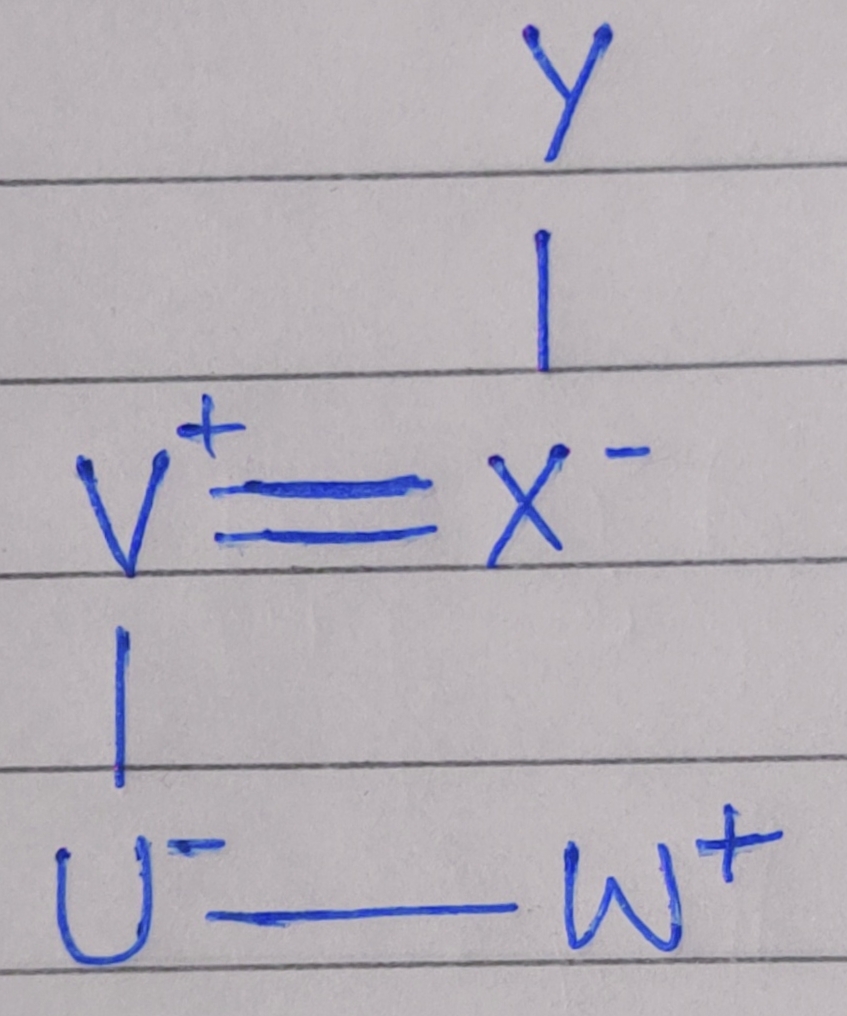 Y
|
V⁺ = X⁻
|
U⁻ — W⁺